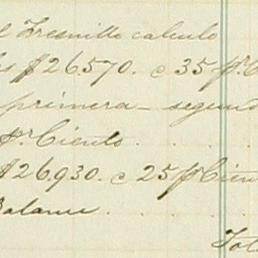 l Fresnillo calculo
$26.570. c 35 pr. C
primera - segund
pr. Ciento
$26,930. c 25 pr Cien
Balance
Tot